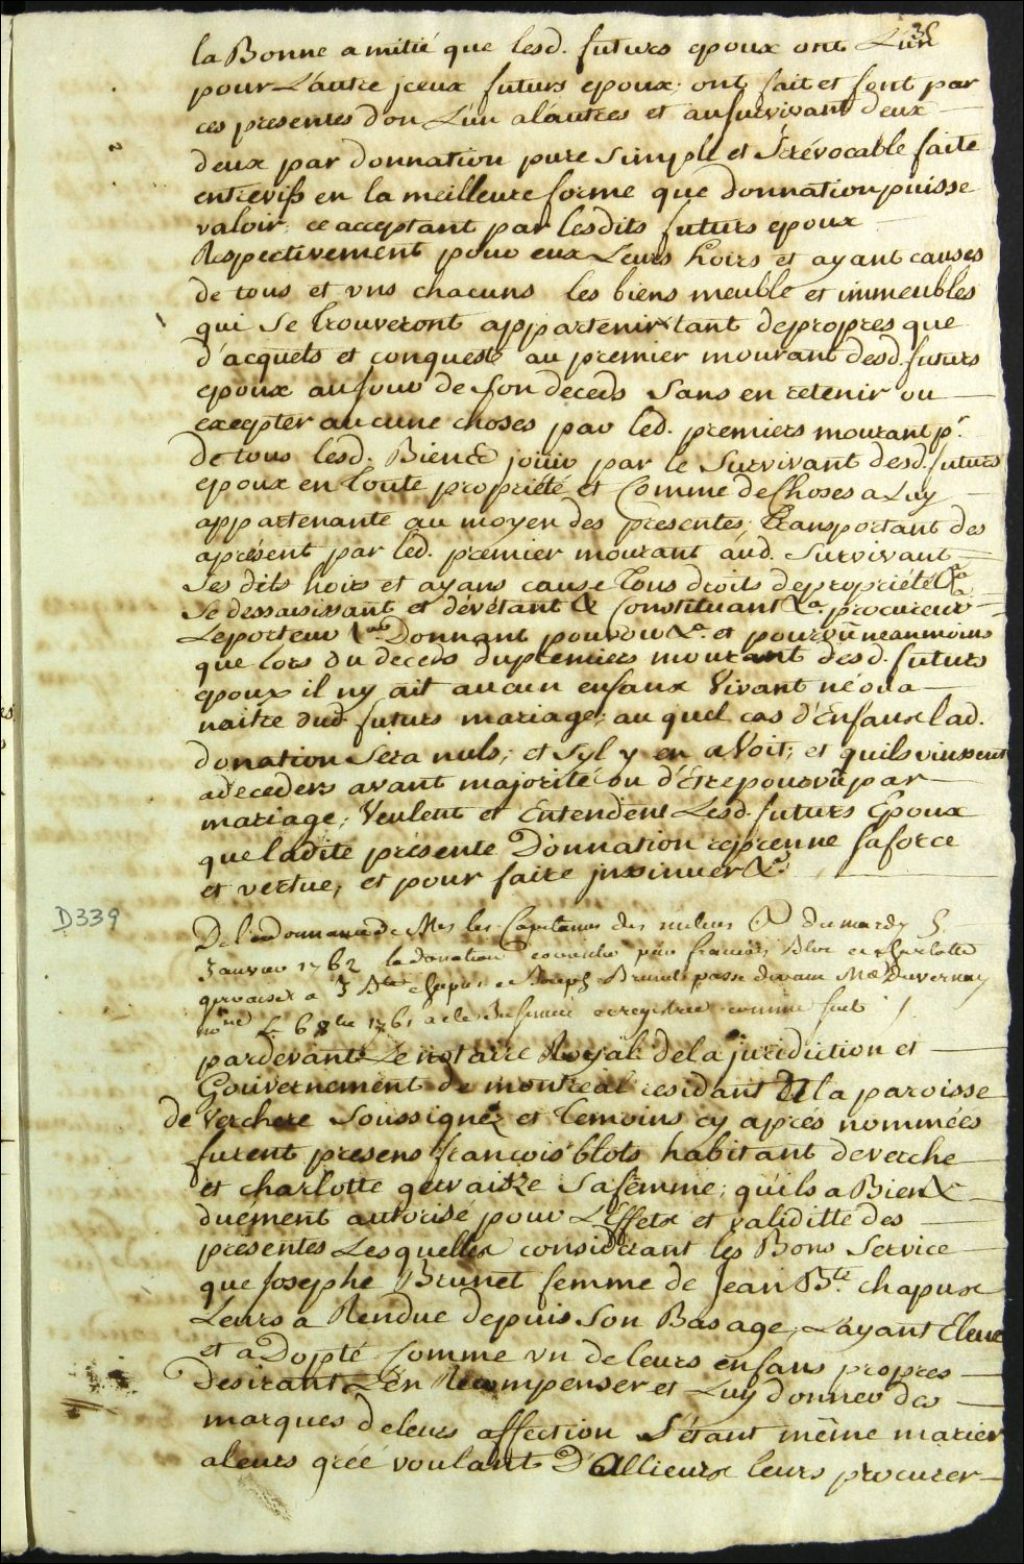 35
la Bonne amitié que lesd. futurs epoux ont L'un
pour L'autre jceux futurs epoux ont fait et font par
ces presentes don L'un alautres et au survivant deux
deux par donnation pure simple et Irévocable faite
entrevifs en la meilleure forme que donnation puisse
valoir ce acceptant par lesdits futurs epoux
Respectivement pour eux Leurs hoirs et ayant causes
de tous et vns chacuns les biens meuble et immeubles
qui Se trouveront appartenir tant depropres que
d'acquets et conquests au premier mourant desd. futurs
epoux au jour de son deceds Sans en retenir ou
excepter aucune choses par led. premiers mourant pr.
De tous lesd. Biens &c jouir par le Survivant desd. futurs
epoux en toute propriété et Comme de Choses a Luy
appartenante au moyen des presentes, transportant des
aprésent par led. premier mourant aud. Survivant
Ses dits hoirs et ayans cause tous droits depropriété &a
Se dessaisissant et dévétant &c Constituant &a. procureur
Leporteur Donnant pouvoir &a. et pourvû neanmoins
que lors du deceds dupremiers mourant desd. futurs
epoux il ny ait aucun enfans Vivant né ou a
naitre dud. futurs mariage; au quel cas d'Enfans lad.
donation Sera nuls; et Syl y en avoit; et quils vinssent
adeceders avant majorité ou d'Etre pourvû par
mariage; Veulent et Entendent Lesd. futurs Epoux
que ladite présente Donnation reprenne saforce
et vertue, et pour faire jnsinuer &a.
D339
De l'ordonnance de Mrs les Capitaines des milices du mardy 5
Janvier 1762 la donation par francois Bloc et charlotte
gervaise a J Bte chapus et Joseph Brunet passé devant Me Duvernay
nore Le 6 8bre 1761 a ete enregistrée comme suit
pardevant Le notaire Royal de la juridiction et
Gouvernement de montreal residant De la paroisse
de Verchere Soussignez et temoins cy aprés nommées
furent presens francois blots habitant deverche
et charlotte gervaisze Sa femme; quils a Bien &
duement autorisé pour L'Effets et validitté des
presentes Lesquelles considerant les Bons Service
que Josephe Brunet femme de Jean Bte. chapus
Leurs a Rendue depuis Son Bas age, L'ayant Elevé
et a Dopté Comme vn de leurs enfans propres
Desirant L'en Recompenser et Luy donner des
marques deleurs affection S'étant même marier
aleurs gréé voulant D'allieurs leurs procurer